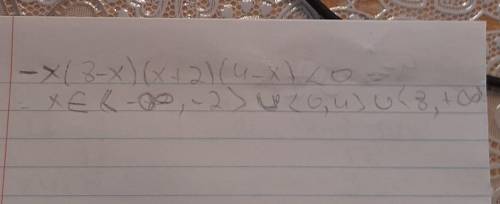 -x(8-x)(x+2)(4-x)<0 =
- x∈<-∞,-2>∪<0,4>∪<8,+∞